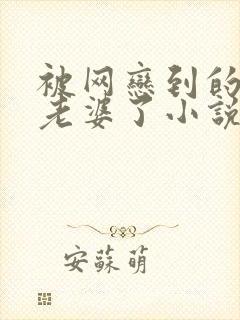 被网恋到的
老婆了小説
安蘇萌